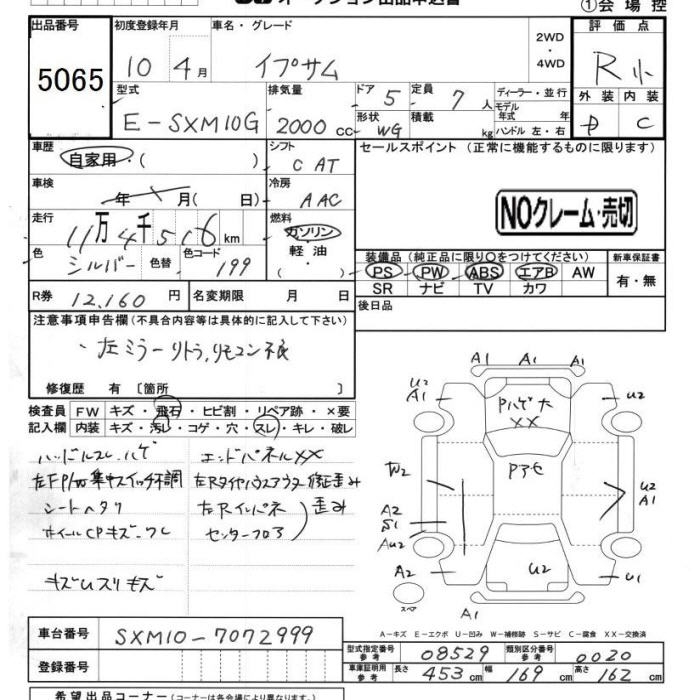 ①会場控
出品番号
5065
初度登録年月
10 4月
車名・グレード
イプサム
2WD
・
4WD
評価点
R小
型式
E-SXM10G
排気量
2000cc
ドア
5
形状
WG
定員
7人
積載
kg
ディーラー・並行
モデル
年式 年
ハンドル 左・右
外装
内装
C
車歴
自家用・( )
シフト
C AT
セールスポイント(正常に機能するものに限ります)
車検
年 月( 日)
冷房
AAC
NOクレーム・売切
走行
11万4千516km
燃料
ガソリン
軽・油
( )
色
シルバー
色替
色コード
199
装備品(純正品に限り〇をつけてください)
PS PW ABS エアB AW
SR ナビ TV カワ
新車保証書
有・無
R券
12,160円
名変期限 月 日
後日品
注意事項申告欄(不具合内容等は具体的に記入して下さい)
・左ミラーリトラ,リモコン不良
修復歴 有〔箇所 〕
検査員
記入欄
FW キズ・飛石・ヒビ割・リペア跡・×要
内装 キズ・汚レ・コゲ・穴・スレ・キレ・破レ
ハンドルスレ、ハゲ
左FP/W集中スイッチ不調
シートヘタリ
ホイールCPキズ・ワレ
キズUスリキズ
エンドパネルXX
左Rタイヤハウスアウター修正歪み
左Rインパネ
センターフロア
歪み
A1 A1 A1
U2
A1
Pハゲ大
XX
U2
Pアセ
W2
U2
A1
A2
S1
AU2
A2
U2
U1
A1
スペア
A-キズ E-エクボ U-凹み W-補修跡 S-サビ C-腐食 XX-交換済
車台番号
SXM10-7072999
登録番号
型式指定番号
参考
08529
類別区分番号
参考
0020
車庫証明用
参考
長さ
453cm
幅
169cm
高さ
162cm
希望出品コーナー(コーナーは各会場により異なります)